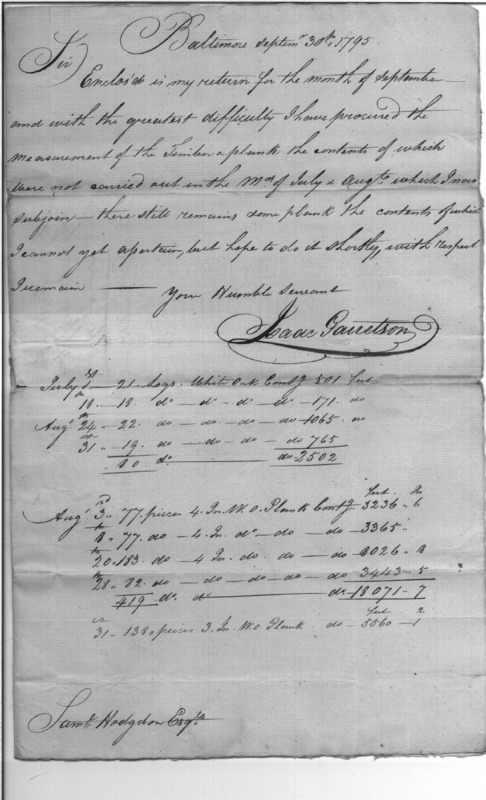 Baltimore Septemr 30th 1795
Sir
Enclos'd is my return for the month of September
and with the greatest difficulty I have procured the
measurement of the Timber & plank the contents of which
were not carried out in the Mo. of July & Augto. which I now
subjoin — there still remains some plank the contents of which
I cannot yet apertain, but hope to do it shortly, with respect
I remain — Your Humble Servant
Isaac Garretson
July 1st - 21 Logs White Oak Contg 501 feet
18th .. 18. do - do - do - do - 171. do
Augt 24th - 22. do - do - do - do - 1065. do
31st - 19. do - do - do - do 765
80 do do 2502
feet In
Augt 3d .. 77. pieces 4. In. W. O. Plank Contg. 3236 .. 6
8th - 77. do - 4. In do - do - do - 3365 -
20th - 183. do - 4 In do. do - do - 8026 - 8
28th - 82. do - do - do - do - do - 3443 - 5
419 do. do do. 18071 - 7
feet 2
31st - 138 pieces 3. In. W. O Plank do - 5560 - 1
Saml. Hodgdon Esqr.